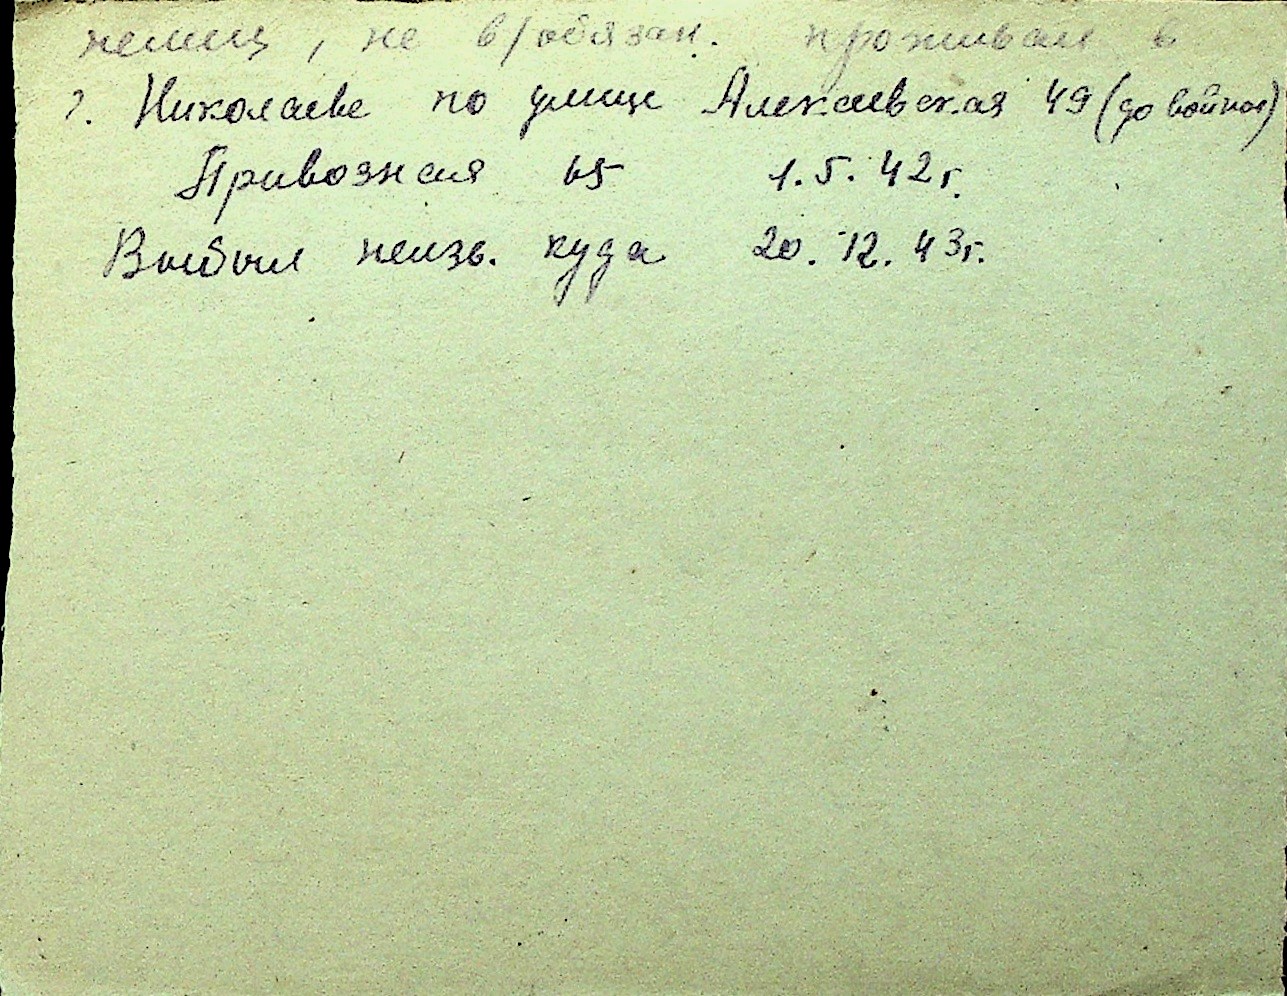 немец, не в/обязан. проживал в
г. Николаеве по улице Алексеевская 49 (до войны)
Привозная 65 1.5.42г.
Выбыл неизв. куда 20.12.43г.